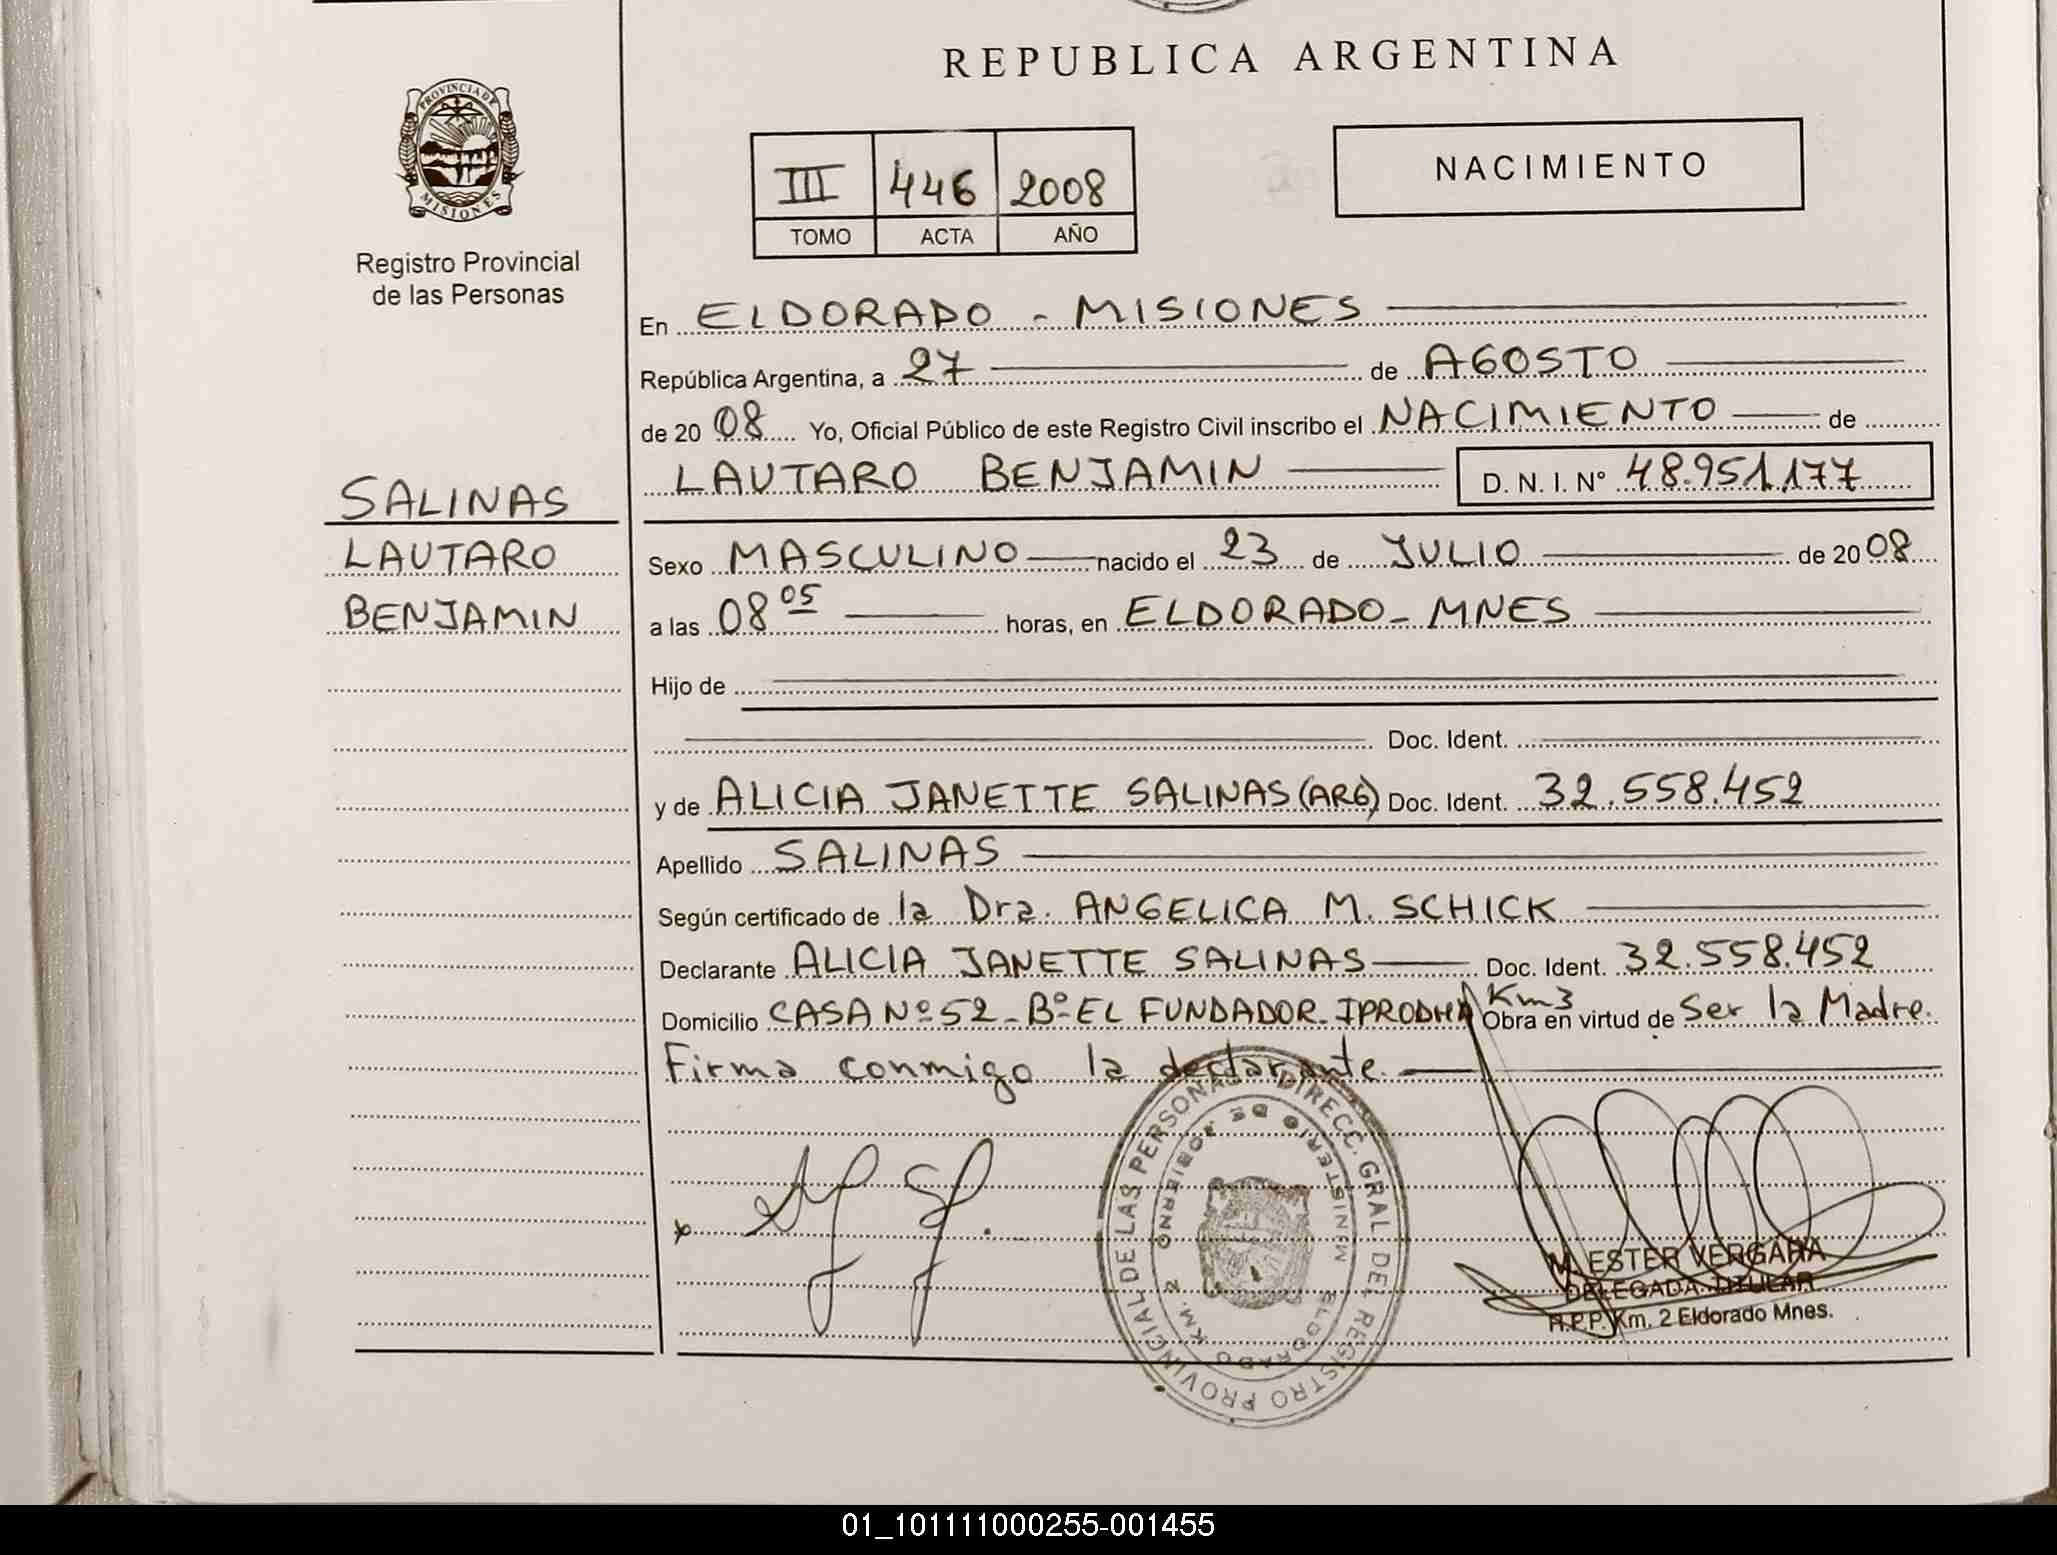 REPUBLICA ARGENTINA
PROVINCIA DE
MISIONES
Registro Provincial
de las Personas
III 446 2008
TOMO ACTA AÑO
NACIMIENTO
En ELDORADO - MISIONES
República Argentina, a 27 de AGOSTO
de 20 08 Yo, Oficial Público de este Registro Civil inscribo el NACIMIENTO de
LAUTARO BENJAMIN D. N. I. Nº 48.951.177
SALINAS
LAUTARO
BENJAMIN
Sexo MASCULINO nacido el 23 de JULIO de 20 08
a las 08 05 horas, en ELDORADO - MNES
Hijo de
Doc. Ident.
y de ALICIA JANETTE SALINAS (ARG) Doc. Ident. 32.558.452
Apellido SALINAS
Según certificado de la Dra. ANGELICA M. SCHICK
Declarante ALICIA JANETTE SALINAS Doc. Ident. 32.558.452
Domicilio CASA Nº 52 - Bº EL FUNDADOR - IPRODHA Km3 Obra en virtud de Ser la Madre.
Firma conmigo la declarante.
DIRECC. GRAL DEL REGISTRO PROVINCIAL DE LAS PERSONAS
MINISTERIO DE GOBIERNO
ELDORADO KM. 2
M. ESTER VERGARA
DELEGADA TITULAR
R.P.P. Km. 2 Eldorado Mnes.
01_101111000255-001455